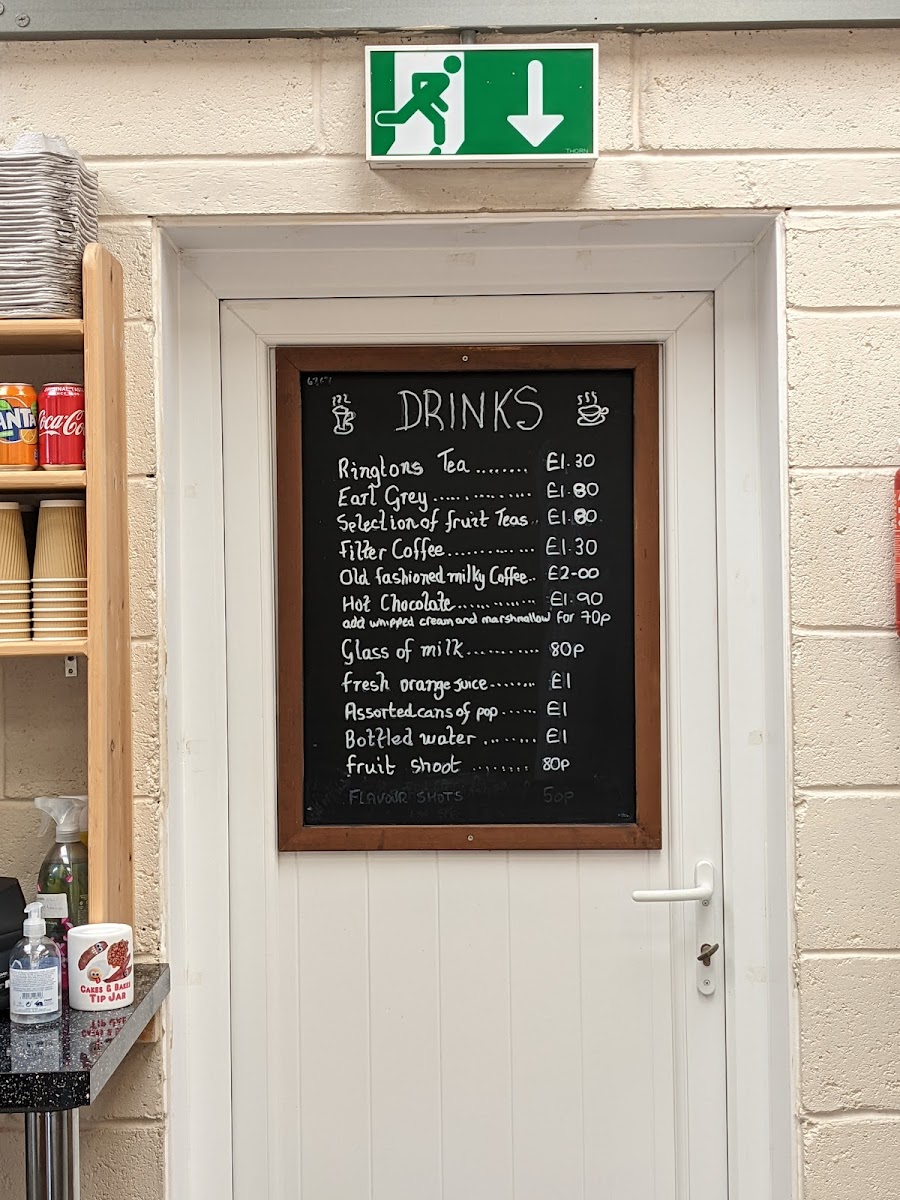 THORN
DRINKS
Ringtons Tea........ £1.30
Earl Grey.............. £1.80
Selection of fruit Teas.. £1.80
Filter Coffee............. £1.30
Old fashioned milky Coffee.. £2-00
Hot Chocolate............. £1.90
add whipped cream and marshmallow for 70p
Glass of milk........... 80p
fresh orange juice....... £1
Assorted cans of pop...... £1
Bottled water ........ £1
fruit shoot ........ 80p
FLAVOUR SHOTS 50p
FANTA
ORIGINAL TASTE
Coca-Cola
CAKES & BAKES
TIP JAR